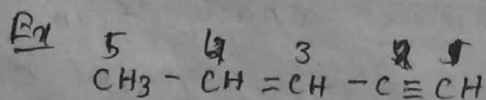 Ex
5 4 3 2 1
CH3 - CH = CH - C ≡ CH